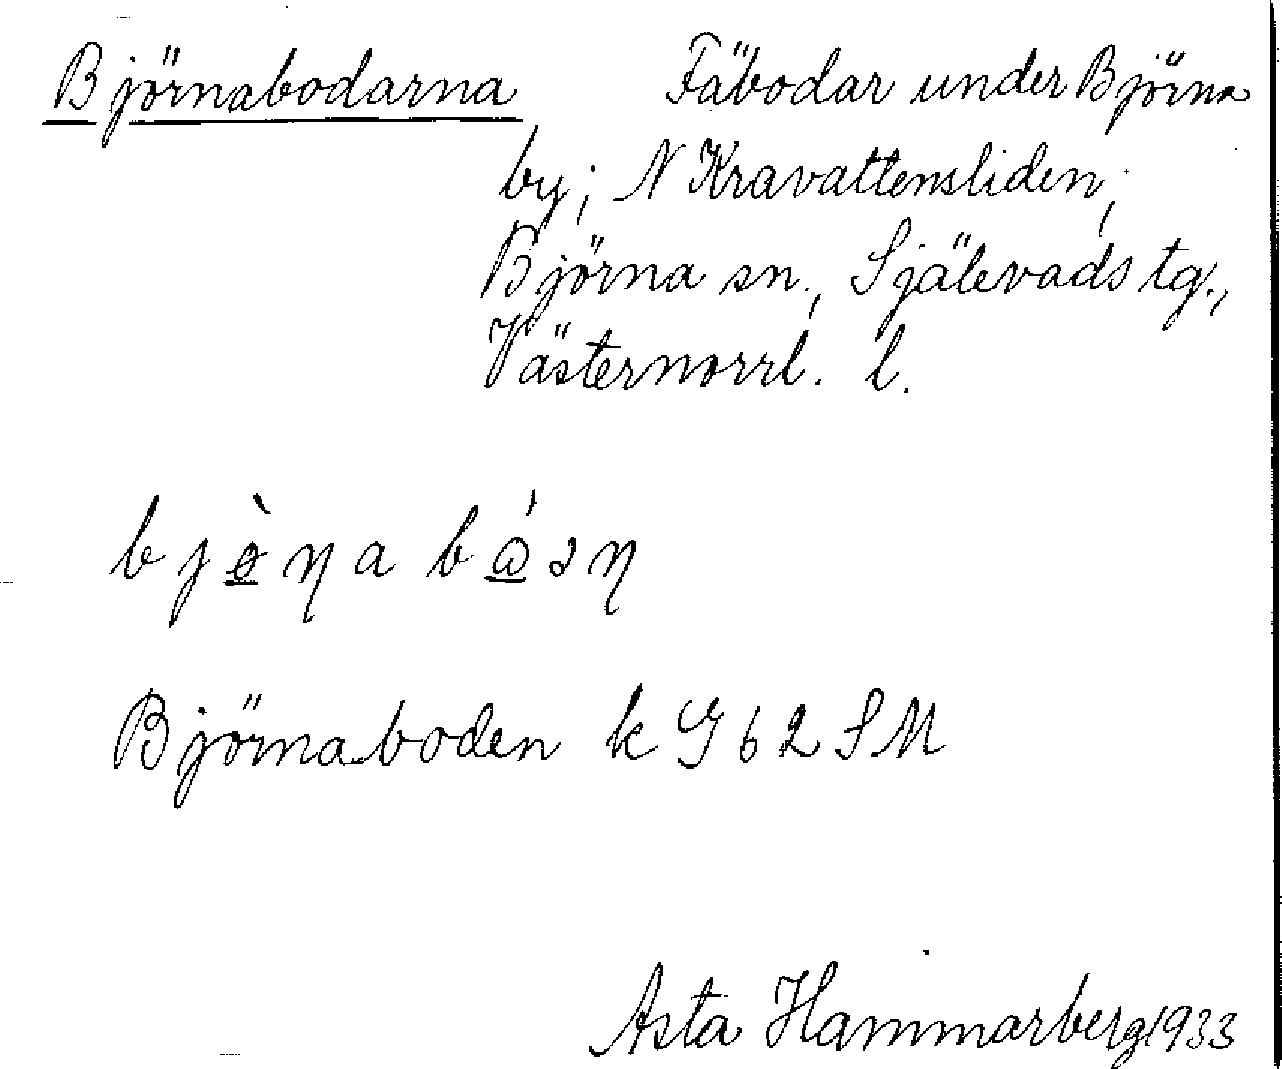 Björnabodarna Fäbodar under Björna
by; N Kravattensliden,
Björna sn., Själevads tg.,
Västernorrl. l.
bjø̲̀ꞃa bɷ̲́ɔꞃ
Björnaboden k G 62 SM
Asta Hammarberg 1933